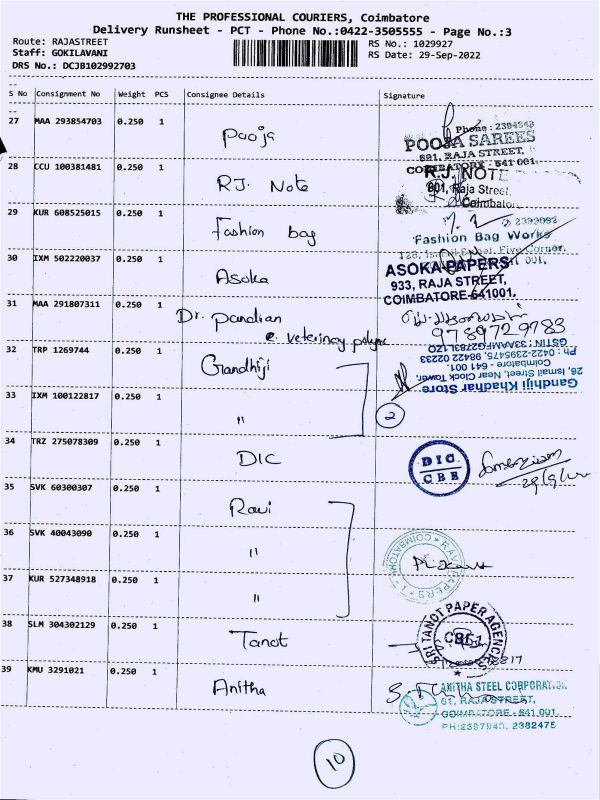 THE PROFESSIONAL COURIERS, Coimbatore
Delivery Runsheet - PCT - Phone No.:0422-3505555 - Page No.:3
Route: RAJASTREET
Staff: GOKILAVANI
DRS No.: DCJB102992703
RS No.: 1029927
RS Date: 29-Sep-2022
S No Consignment No Weight PCS Consignee Details Signature
27 MAA 293854703 0.250 1 Pooja
Phone: 2394343
POOJA SAREES
891, RAJA STREET,
COIMBATORE - 641 001.
28 CCU 100381481 0.250 1 RJ. Note
R.J. NOTE
801, Raja Street,
Coimbatore
29 KUR 608525015 0.250 1 Fashion bag
2393093
Fashion Bag Works
128, Ismail Street, Five Corner,
641 001.
30 IXM 502220037 0.250 1 Asoka
ASOKA PAPERS
933, RAJA STREET,
COIMBATORE-641001.
31 MAA 291807311 0.250 1 Dr. pandian
e. veterinary
9789729783
32 TRP 1269744 0.250 1 Gandhiji
Gandhiji Khadhar Store
26, Ismail Street, Near Clock Tower,
Coimbatore - 641 001.
Ph : 0422-2395475, 98422 02233
GSTIN : 33AAMFG2783L1ZO
33 IXM 100122817 0.250 1 "
2
34 TRZ 275078309 0.250 1 DIC
DIC
CBE
29/9/22
35 SVK 60300307 0.250 1 Ravi
36 SVK 40043090 0.250 1 "
RAVI PAPERS
COIMBATORE - 1
37 KUR 527348918 0.250 1 "
38 SLM 304302129 0.250 1 Tanot
SRI TANOT PAPER AGENCIES
CBE-1
39 KMU 3291021 0.250 1 Anitha
ANITHA STEEL CORPORATION.
61, RAJA STREET,
COIMBATORE - 641 001.
PH:2397940, 2382475
10